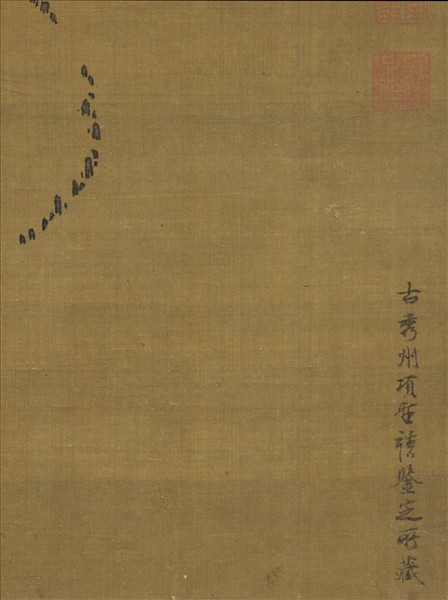 古秀州項聖謨鑒定所藏